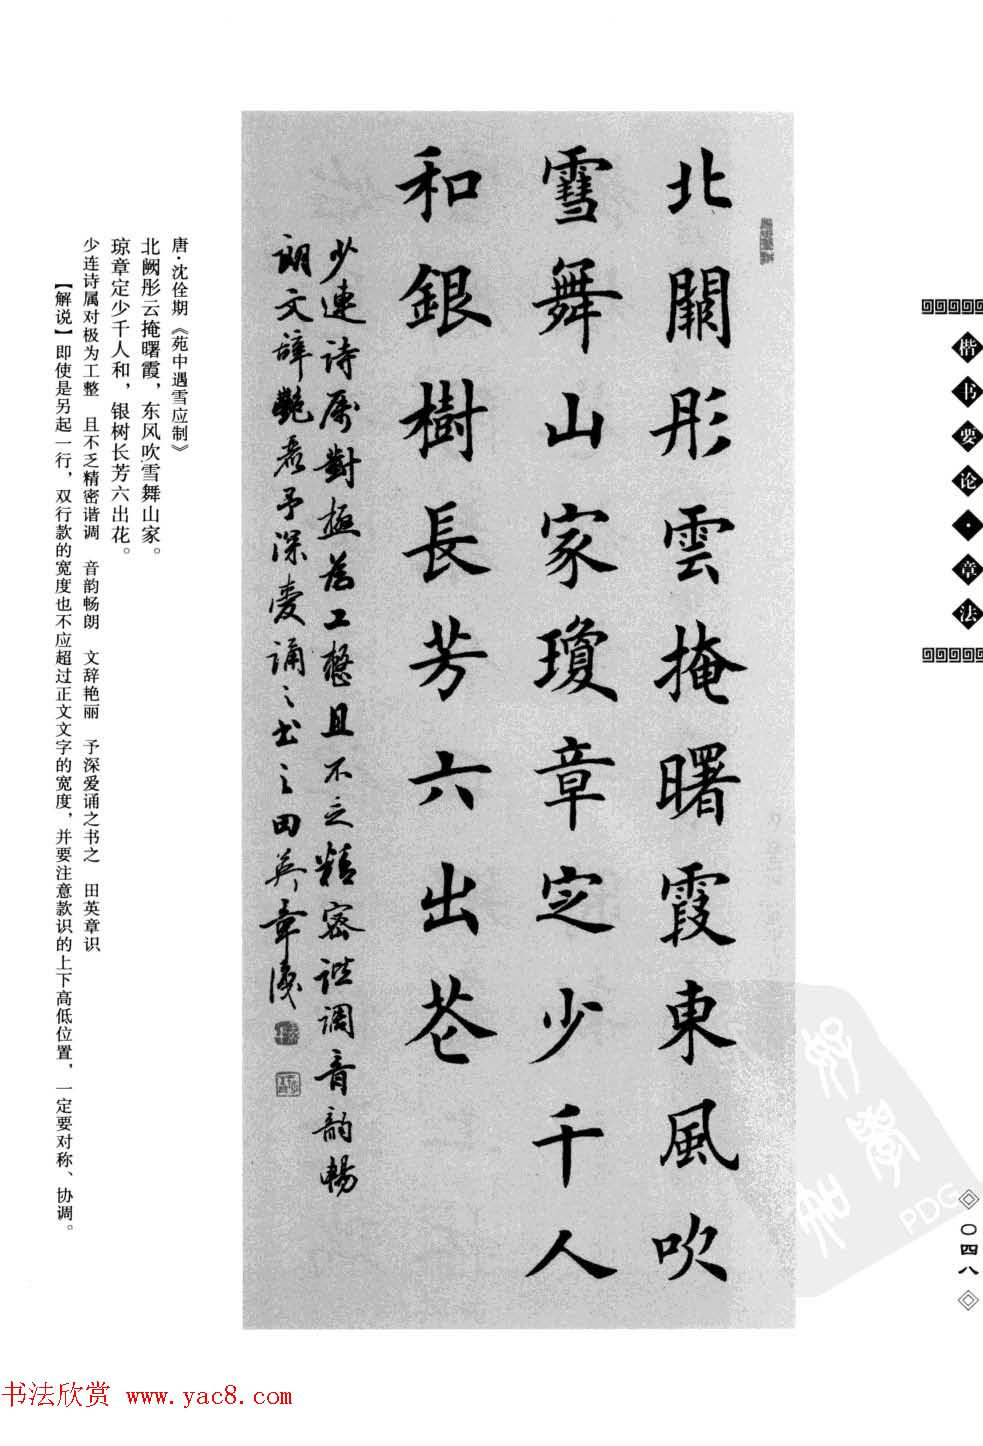 楷书要论·章法
〇四八
北闕彤雲掩曙霞東風吹
雪舞山家瓊章定少千人
和銀樹長芳六出花
少連詩属對極為工整且不乏精密谐調音韵暢
朗文辞艷麗予深愛誦之书之田英章识
唐·沈佺期《苑中遇雪应制》
北阙彤云掩曙霞，东风吹雪舞山家。
琼章定少千人和，银树长芳六出花。
少连诗属对极为工整 且不乏精密谐调 音韵畅朗 文辞艳丽 予深爱诵之书之 田英章识
【解说】即使是另起一行，双行款的宽度也不应超过正文文字的宽度，并要注意款识的上下高低位置，一定要对称、协调。
PDG
书法欣赏 www.yac8.com